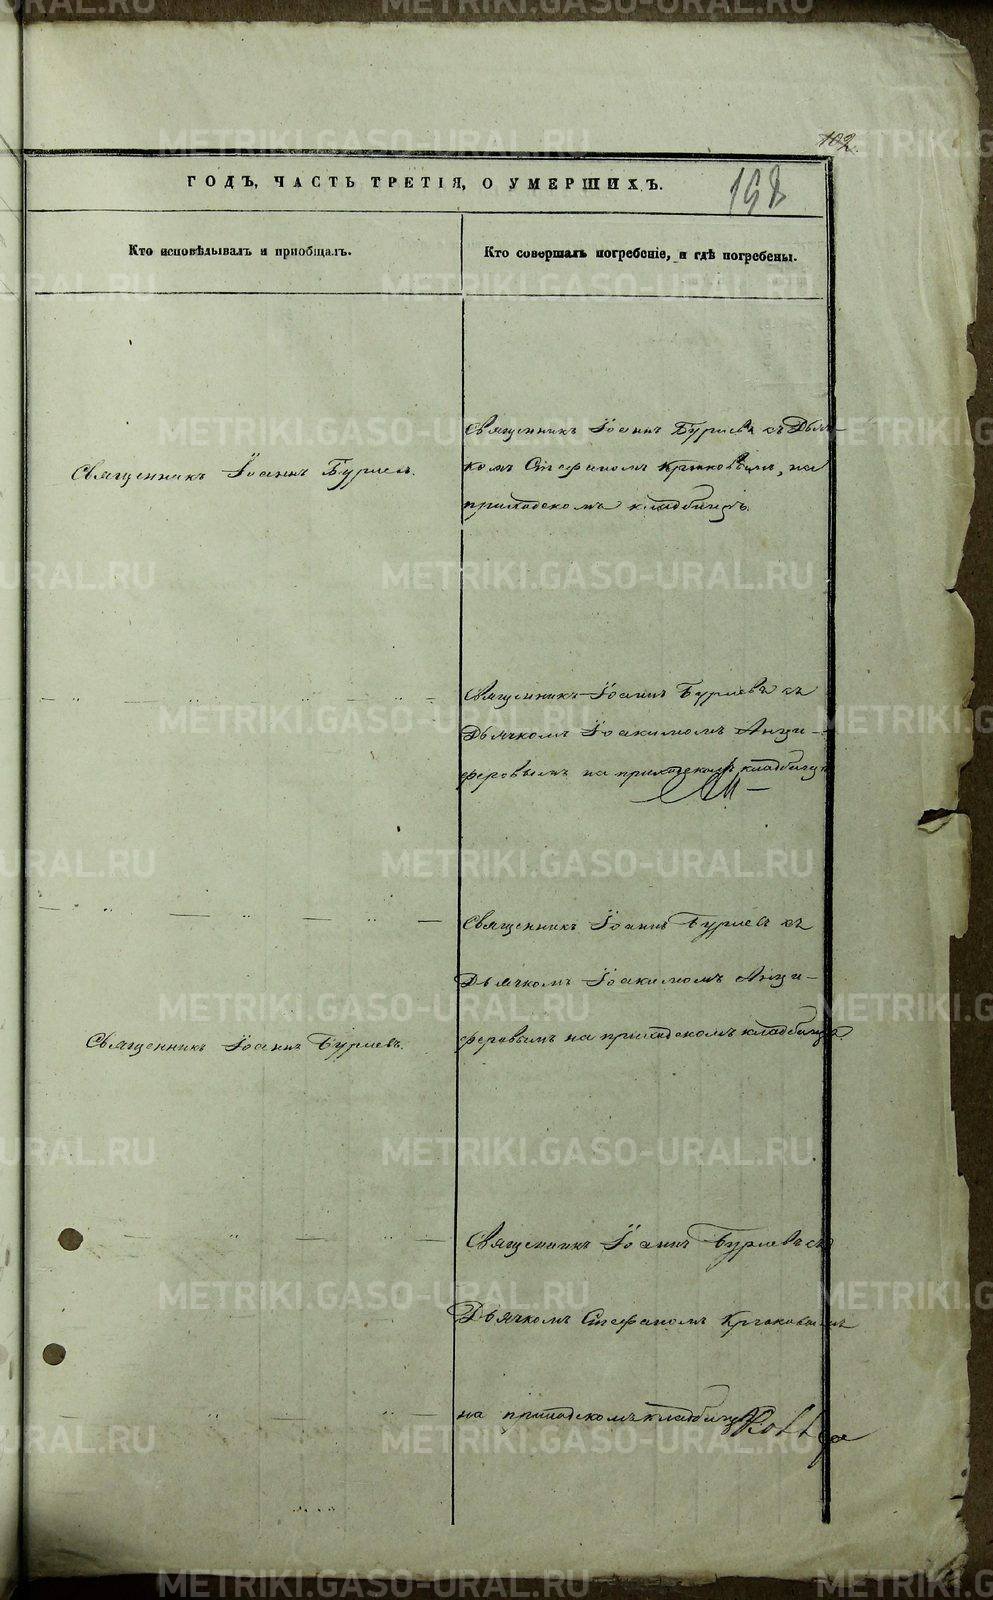 102.
ГОДЪ, ЧАСТЬ ТРЕТІЯ, О УМЕРШИХЪ.
198
Кто исповѣдывалъ и пріобщалъ.
Кто совершалъ погребеніе, и гдѣ погребены.
Священникъ Іоаннъ Бурчевъ.
Священникъ Іоаннъ Бурчевъ съ Дьяч-
комъ Стефаномъ Крюковымъ, на
приходскомъ кладбищѣ.
Священникъ Іоаннъ Бурчевъ съ
Дьячкомъ Іоакимомъ Анци-
феровымъ на приходскомъ кладбищѣ
Священникъ Іоаннъ Бурчевъ съ
Дьячкомъ Іоакимомъ Анци-
феровымъ на приходскомъ кладбищѣ
Священникъ Іоаннъ Бурчевъ.
Священникъ Іоаннъ Бурчевъ съ
Дьячкомъ Стефаномъ Крюковымъ
на приходскомъ кладбищѣ
METRIKI.GASO-URAL.RU